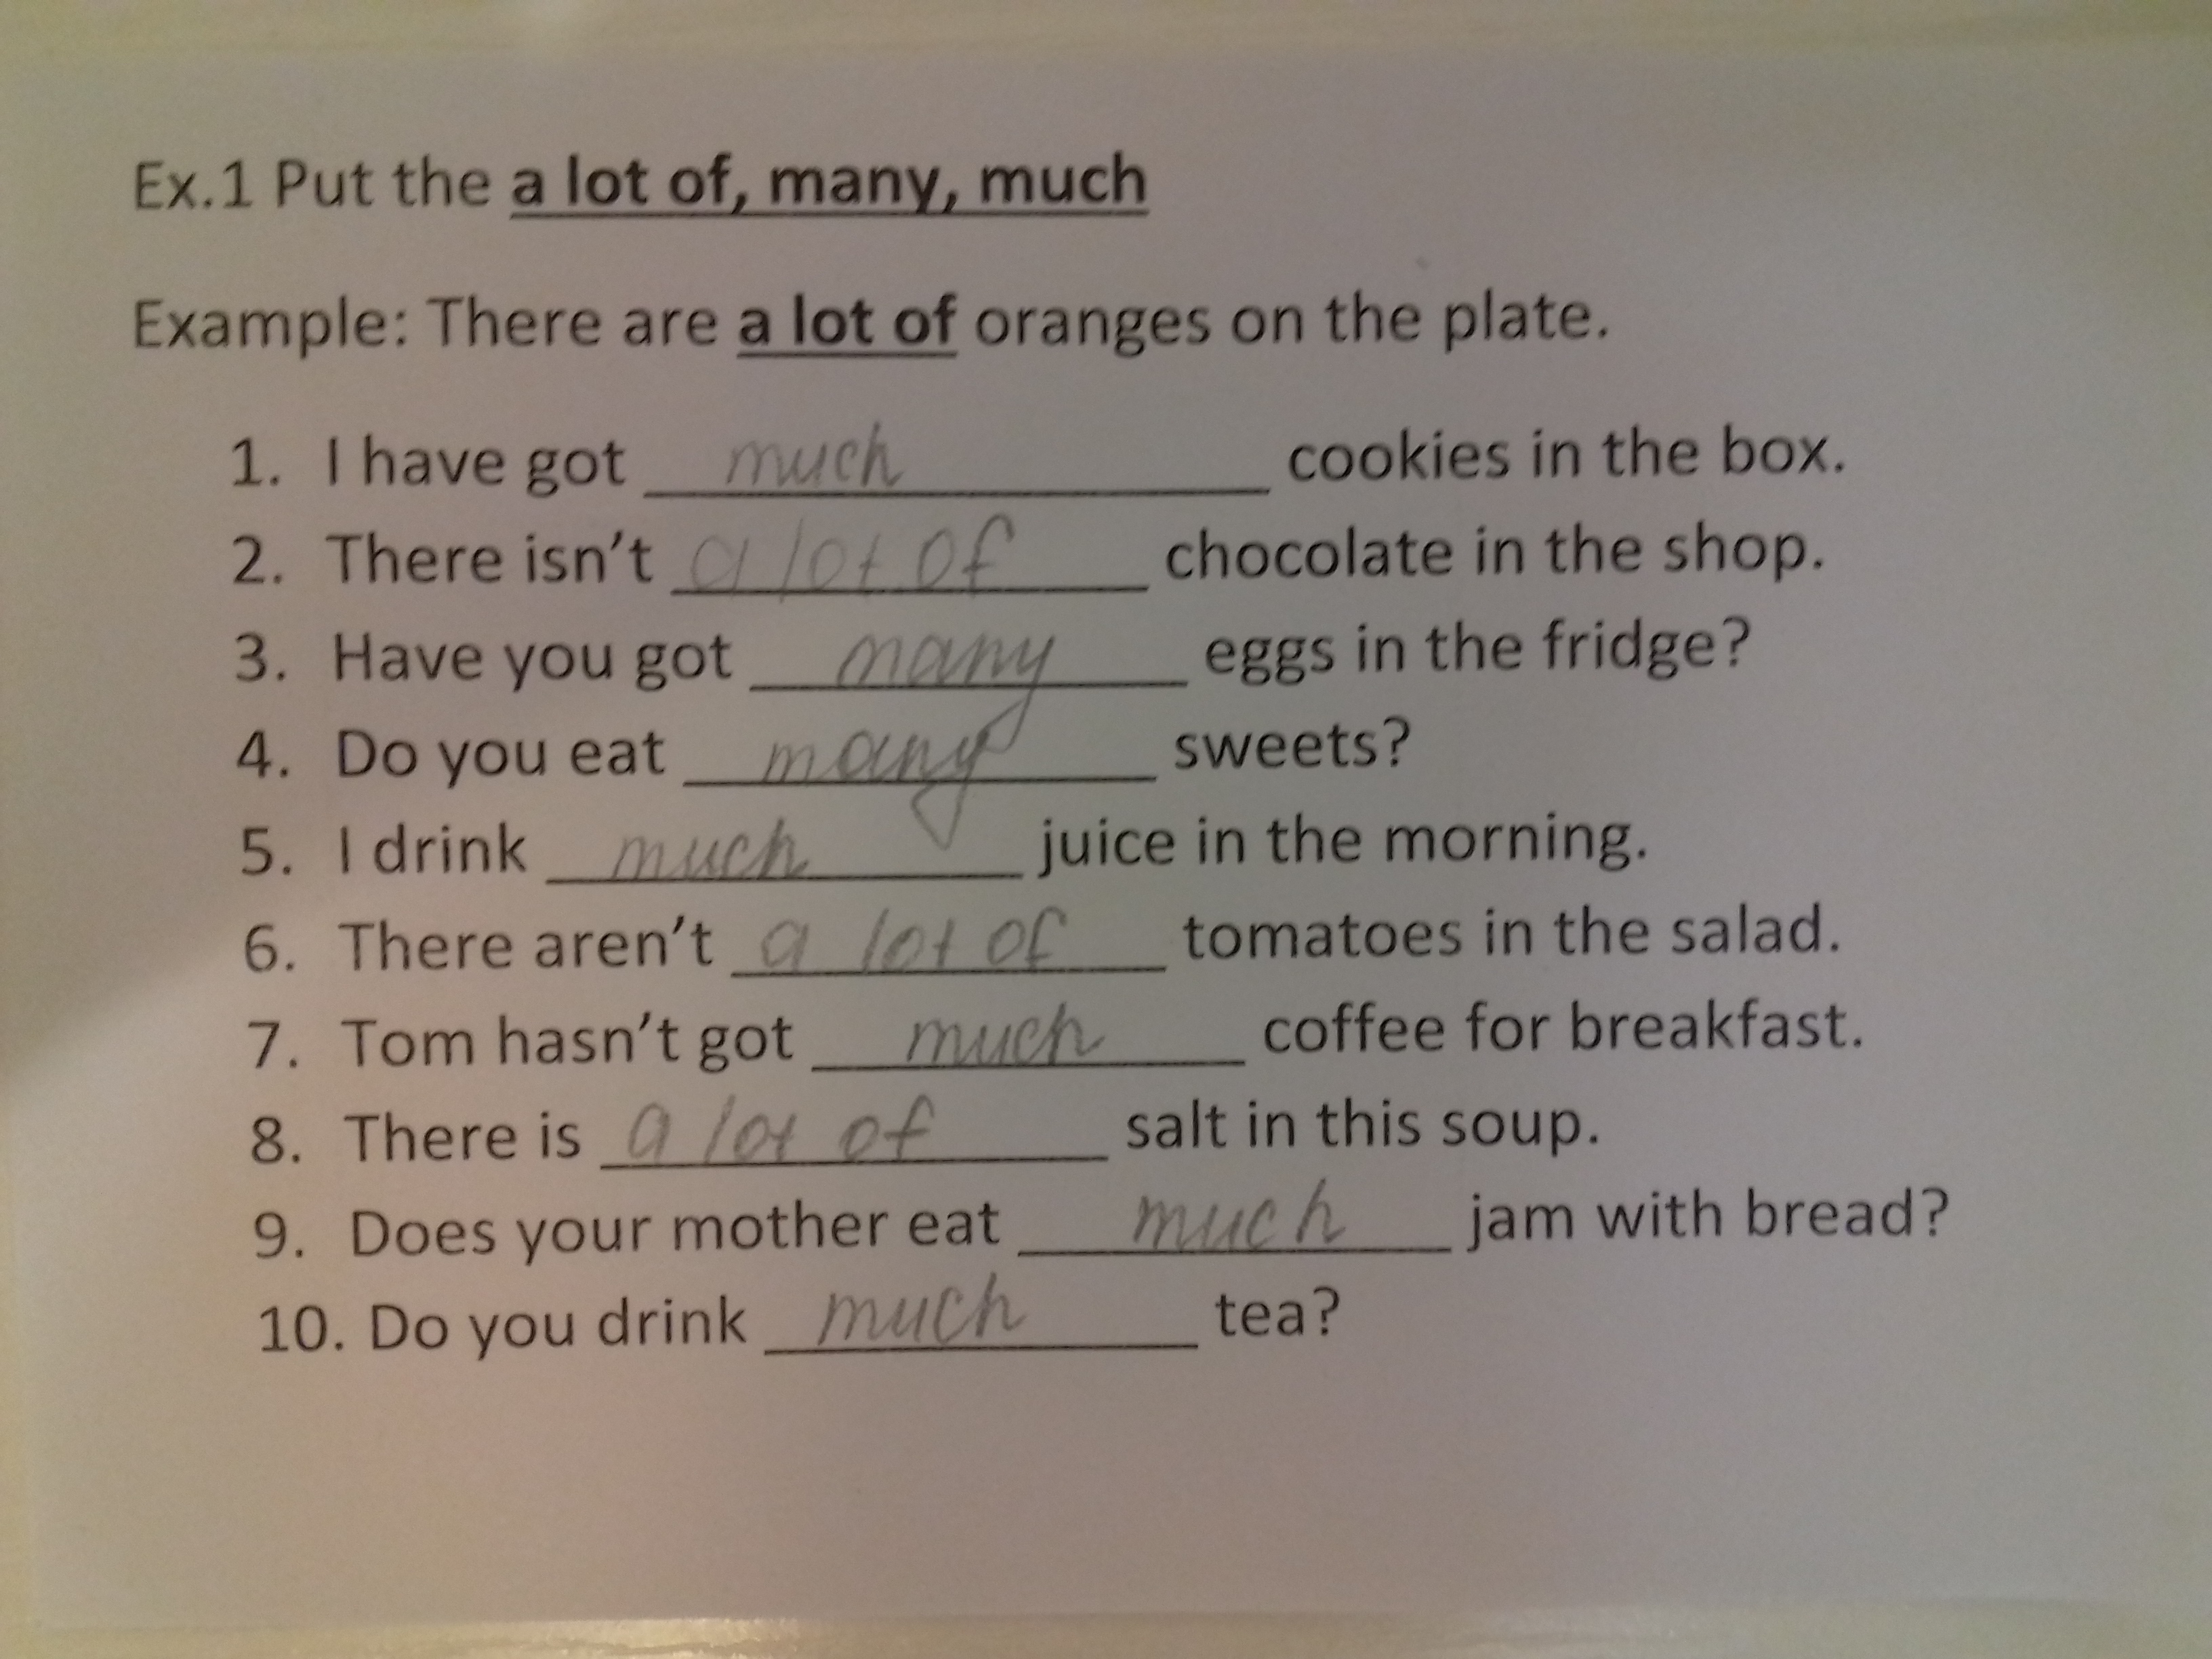 Ex.1 Put the a lot of, many, much
Example: There are a lot of oranges on the plate.
1. I have got much cookies in the box.
2. There isn't a lot of chocolate in the shop.
3. Have you got many eggs in the fridge?
4. Do you eat many sweets?
5. I drink much juice in the morning.
6. There aren't a lot of tomatoes in the salad.
7. Tom hasn't got much coffee for breakfast.
8. There is a lot of salt in this soup.
9. Does your mother eat much jam with bread?
10. Do you drink much tea?